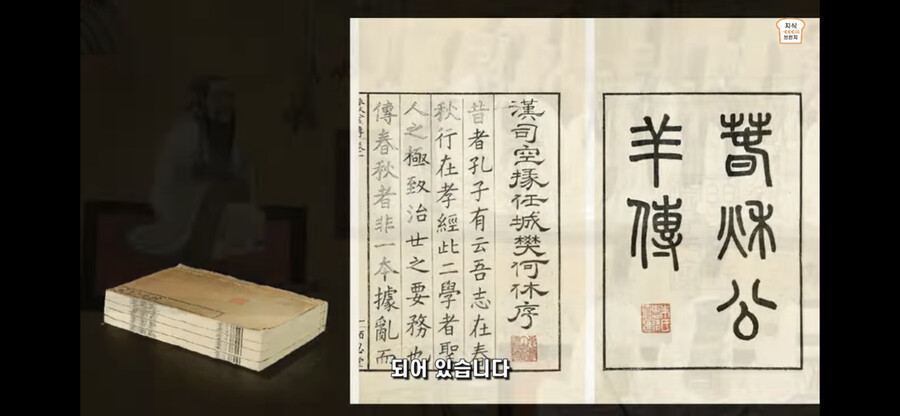 지식
브런치
春秋公
羊傳
漢司空掾任城樊何休序
昔者孔子有云吾志在春
秋行在孝經此二學者聖
人之極致治世之要務也
傳春秋者非一本據亂而
되어 있습니다